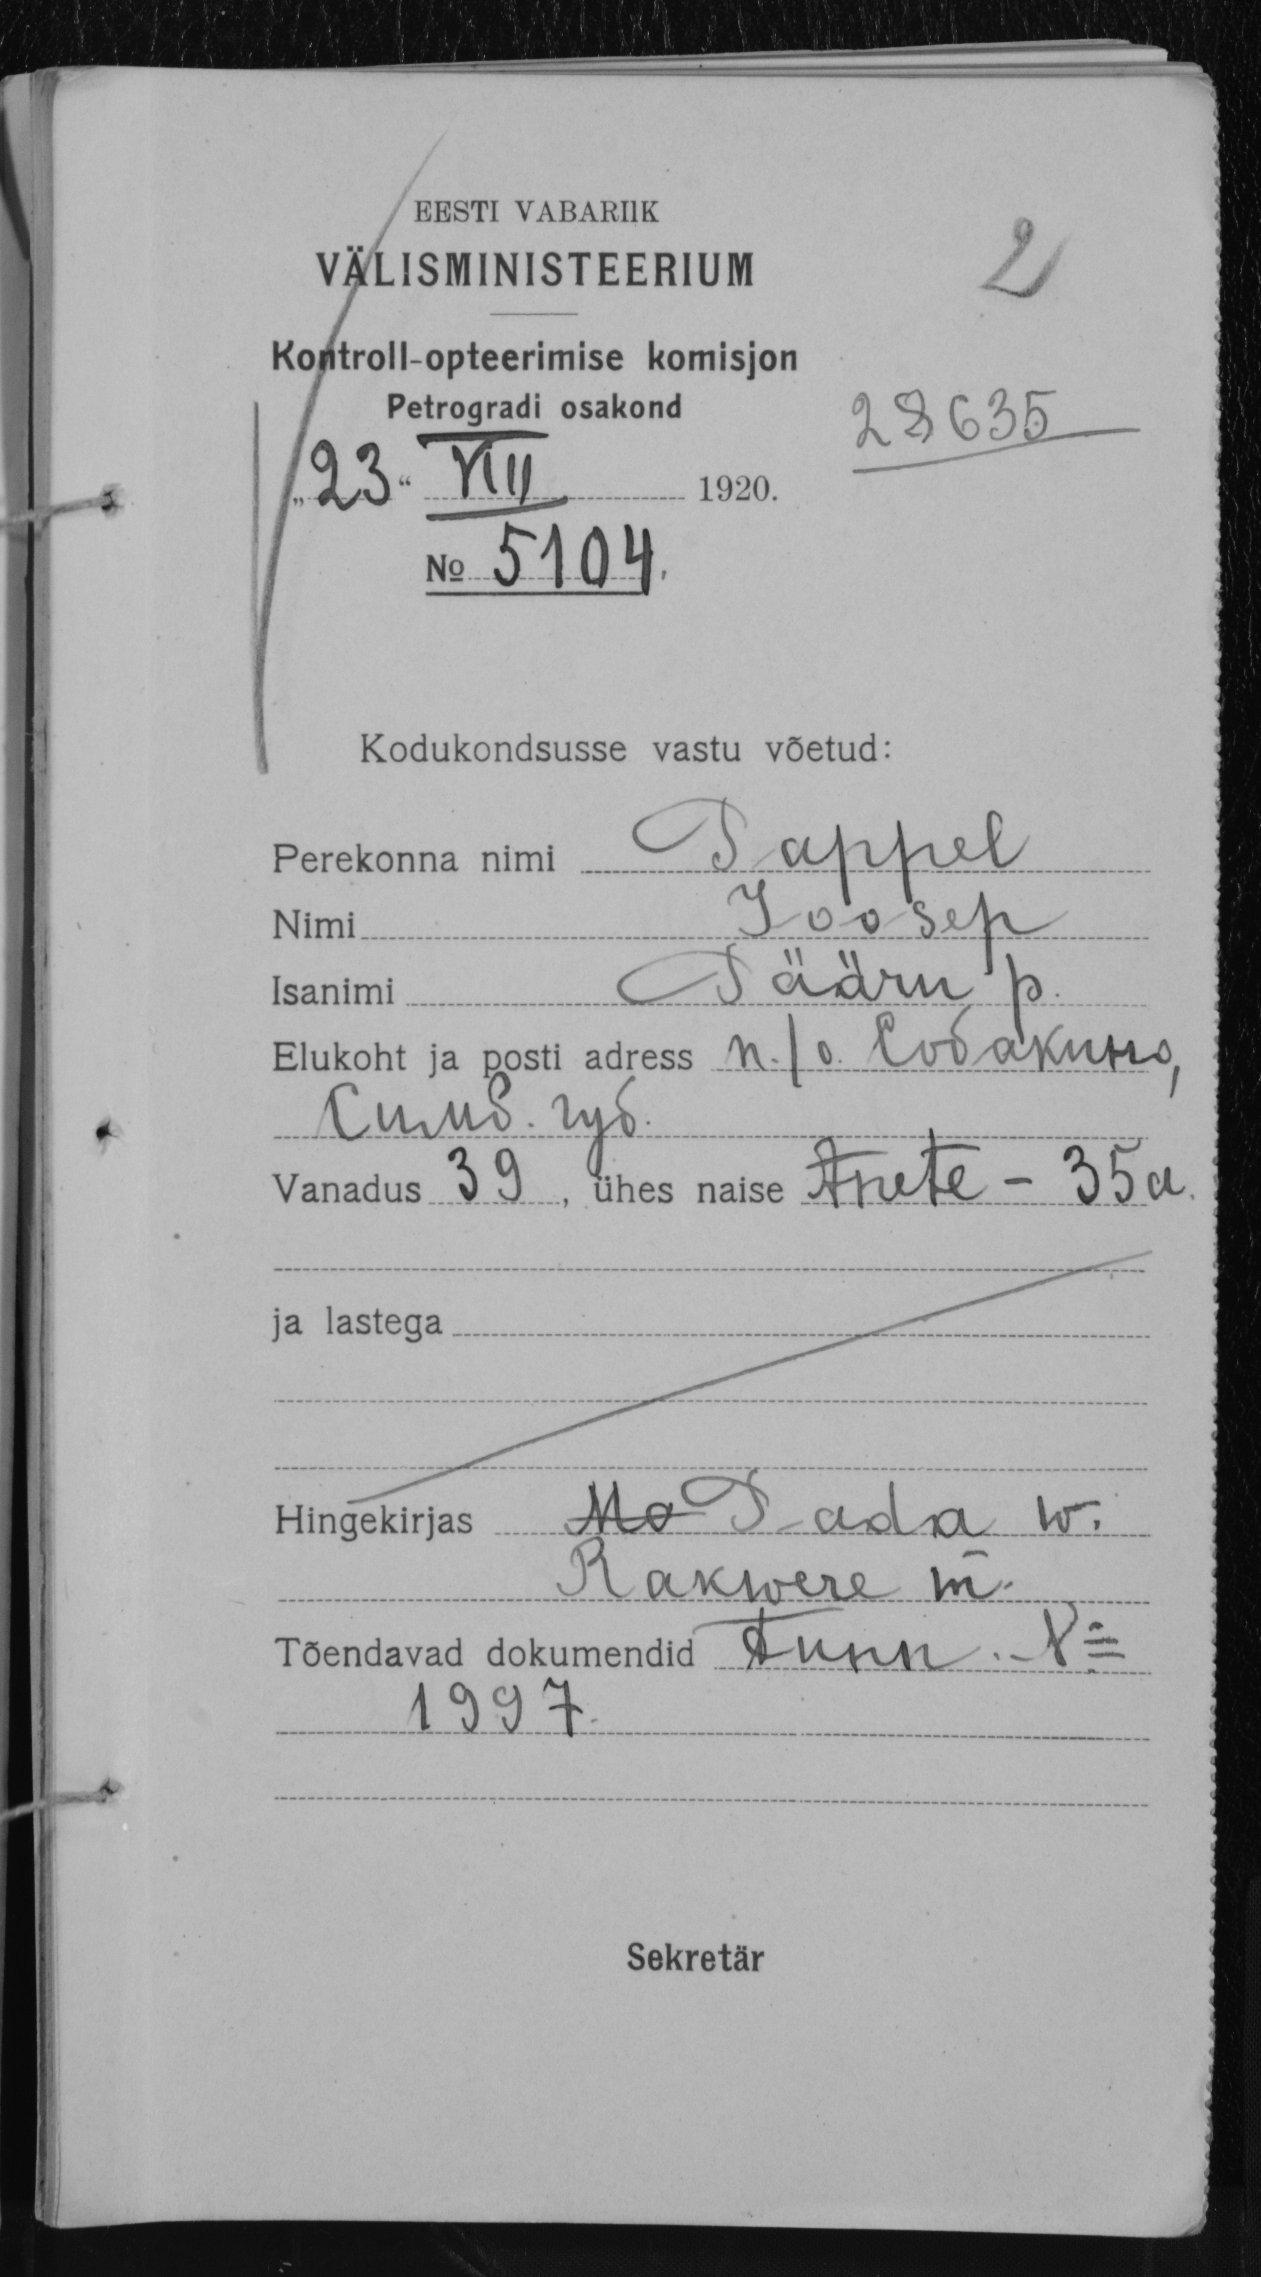 EESTI VABARIIK
VÄLISMINISTEERIUM
2
Kontroll-opteerimise komisjon
Petrogradi osakond
28635
„23“ VIII 1920.
№ 5104.
Kodukondsusse vastu võetud:
Perekonna nimi Pappel
Nimi Joosep
Isanimi Pääru p.
Elukoht ja posti adress п./о. Собакино,
Симб. губ.
Vanadus 39, ühes naise Anete - 35 a.
ja lastega
Hingekirjas Mo Pada w.
Rakwere m.
Tõendavad dokumendid Tunn. №
1997.
Sekretär